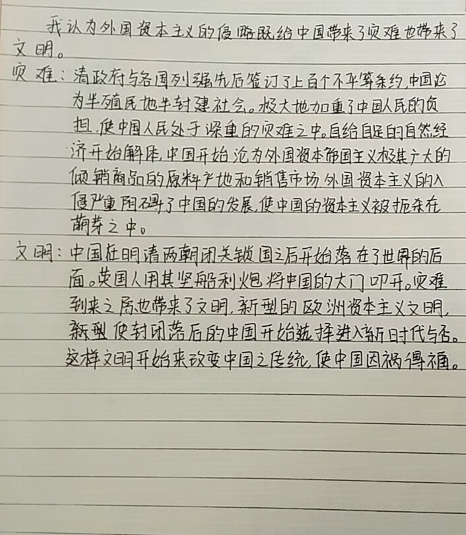 我认为外国资本主义的侵略既给中国带来了灾难也带来了
文明。
灾难：清政府与各国列强先后签订了上百个不平等条约，中国沦
为半殖民地半封建社会。极大地加重了中国人民的负
担，使中国人民处于深重的灾难之中。自给自足的自然经
济开始解体，中国开始沦为外国资本帝国主义极其广大的
倾销商品的原料产地和销售市场外国资本主义的入
侵严重阻碍了中国的发展，使中国的资本主义被扼杀在
萌芽之中。
文明：中国在明清两朝闭关锁国之后开始落在了世界的后
面。英国人用其坚船利炮将中国的大门叩开。灾难
到来之后也带来了文明，新型的欧洲资本主义文明，
新型使封闭落后的中国开始选择进入新时代与否。
这样文明开始来改变中国之传统，使中国因祸得福。